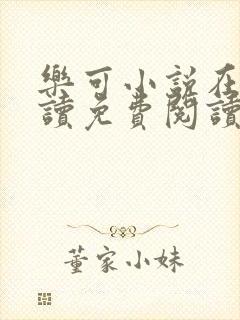 樂可小說在
讀免費閱讀
董家小妹